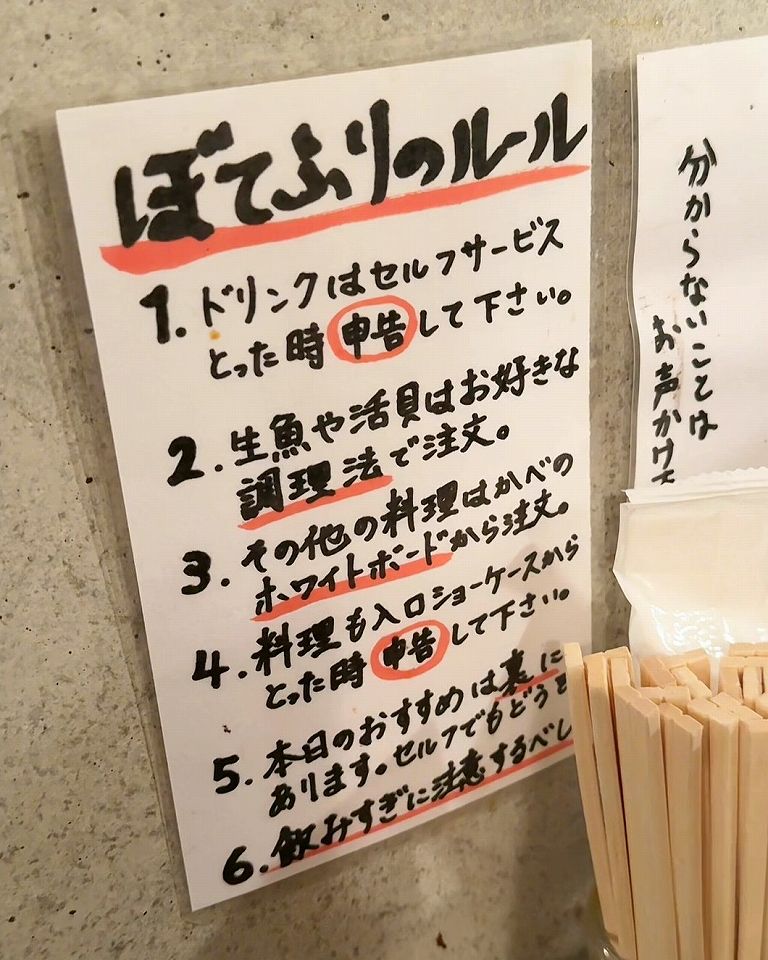 ぼてふりのルール
1. ドリンクはセルフサービス
とった時申告して下さい。
2. 生魚や活貝はお好きな
調理法で注文。
3. その他の料理はかべの
ホワイトボードから注文。
4. 料理も入口ショーケースから
とった時申告して下さい。
5. 本日のおすすめは裏に
あります。セルフでもどうぞ
6. 飲みすぎに注意するべし
分からないことは
お声かけ下